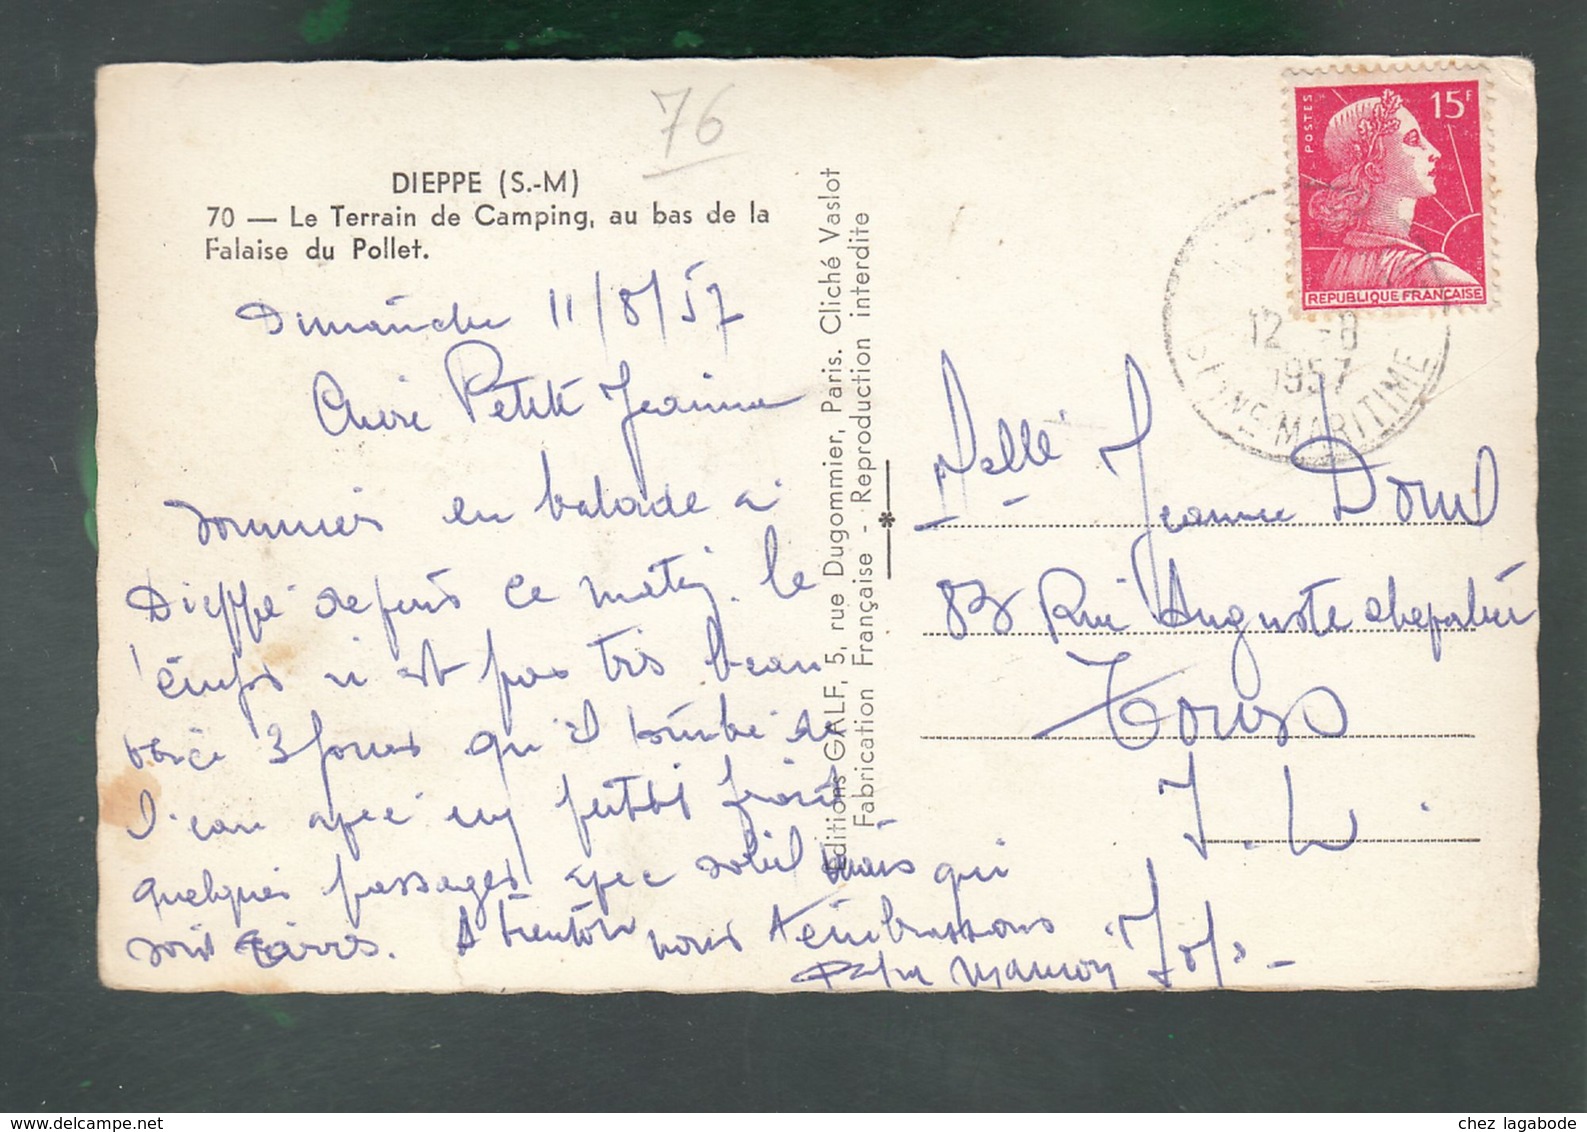 76
DIEPPE (S.-M)
70 — Le Terrain de Camping, au bas de la
Falaise du Pollet.
Dimanche 11/8/57
Chère Petite Jeannine
sommes en balade a
Dieppe depuis ce matin. le
temps n'est pas très beau
voici 3 jours qu'il tombe de
l'eau avec un petit froid
quelques passages avec soleil mais qui
sont rares. A bientôt nous t'embrassons
Maman
Editions GALF, 5, rue Dugommier, Paris. Cliché Vaslot
Fabrication Française - Reproduction interdite
POSTES
15F
REPUBLIQUE FRANÇAISE
12 -8
1957
SEINE MARITIME
Melle Jeannine
83 Rue Auguste Chevalier
Tours
I. L.
chez lagabode